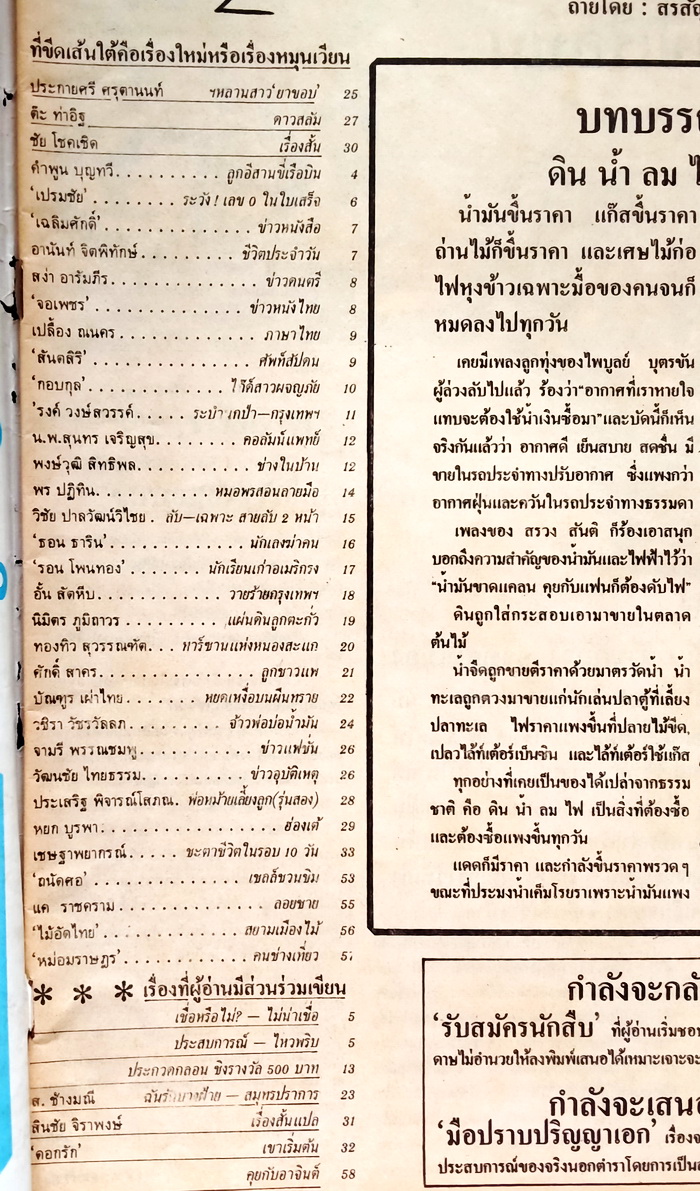 ถ่ายโดย :
ที่ขีดเส้นใต้คือเรื่องใหม่หรือเรื่องหมุนเวียน
ประกายศรี ศรุตานนท์ ฯหลานสาว'ยาขอบ' 25
ต๊ะ ท่าอิฐ ดาวสลัม 27
ชัย โชคเชิด เรื่องสั้น 30
คำพูน บุญทวี.......... ลูกอีสานขี่เรือบิน 4
'เปรมชัย' ......... ระวัง! เลข 0 ในใบเสร็จ 6
'เฉลิมศักดิ์' ............... ข่าวหนังสือ 7
อานันท์ จิตพิทักษ์......... ชีวิตประจำวัน 7
สง่า อารัมภีร............... ข่าวดนตรี 8
'จอเพชร' ................ ข่าวหนังไทย 8
เปลื้อง ณนคร ............... ภาษาไทย 9
'สันตสิริ' ................. ศัพท์สัปดน 9
'กอบกุล' .............. ไว้ดี๋สาวผจญภัย 10
'รงค์ วงษ์สวรรค์..... ระบำเกป๋า—กรุงเทพฯ 11
น.พ.สุนทร เจริญสุข......... คอลัมน์แพทย์ 12
พงษ์วุฒิ สิทธิพล............ ช่างในบ้าน 12
พร ปฏิทิน............ หมอพรสอนลายมือ 14
วิชัย ปาลวัฒน์วิไชย . ลับ—เฉพาะ สายลับ 2 หน้า 15
'ธอน ธาริน'............... นักเลงฆ่าคน 16
'รอน โพนทอง' ....... นักเรียนเก่าอเมริกรง 17
อั๋น สัตหีบ............. วายร้ายกรุงเทพฯ 18
นิมิตร ภูมิถาวร .......... แผ่นดินลูกตะกั่ว 19
ทองทิว สุวรรณทัต... ทาร์ซานแห่งหนองสะแก 20
ศักดิ์ สาคร................ ลูกขาวแพ 21
บัณฑูร เผ่าไทย....... หยดเหงื่อบนผืนทราย 22
วชิรา วัชรวัลลภ............ จ้าวพ่อบ่อน้ำมัน 24
จามรี พรรณชมพู............ ข่าวแฟชั่น 26
วัฒนชัย ไทยธรรม........... ข่าวอุบัติเหตุ 26
ประเสริฐ พิจารณ์โสภณ. พ่อหม้ายเลี้ยงลูก(รุ่นสอง) 28
หยก บูรพา.................. ฮ่องเต้ 29
เชษฐาพยากรณ์..... ชะตาชีวิตในรอบ 10 วัน 33
'ถนัดศอ' ............... เชลล์ชวนชิม 53
แค ราชคราม .............. ลอยชาย 55
'ไม้อัดไทย' ............. สยามเมืองไม้ 56
'หม่อมราษฎร' ............ คนช่างเที่ยว 57
* * * เรื่องที่ผู้อ่านมีส่วนร่วมเขียน
เชื่อหรือไม่? — ไม่น่าเชื่อ 5
ประสบการณ์ — ไหวพริบ 5
ประกวดกลอน ชิงรางวัล 500 บาท 13
ส. ช้างมณี ฉันรักบางฝ้าย — สมุทรปราการ 23
สินชัย จิราพงษ์ เรื่องสั้นแปล 31
'ดอกรัก' เขาเริ่มต้น 32
คุยกับอาจินต์ 58
บทบรร
ดิน น้ำ ลม
น้ำมันขึ้นราคา แก๊สขึ้นราคา
ถ่านไม้ก็ขึ้นราคา และเศษไม้ก่อ
ไฟหุงข้าวเฉพาะมื้อของคนจนก็
หมดลงไปทุกวัน
เคยมีเพลงลูกทุ่งของไพบูลย์ บุตรขัน
ผู้ล่วงลับไปแล้ว ร้องว่า"อากาศที่เราหายใจ
แทบจะต้องใช้น้ำเงินซื้อมา"และบัดนี้ก็เห็น
จริงกันแล้วว่า อากาศดี เย็นสบาย สดชื่น มี
ขายในรถประจำทางปรับอากาศ ซึ่งแพงกว่า
อากาศฝุ่นและควันในรถประจำทางธรรมดา
เพลงของ สรวง สันติ ก็ร้องเอาสนุก
บอกถึงความสำคัญของน้ำมันและไฟฟ้าไว้ว่า
"น้ำมันขาดแคลน คุยกับแฟนก็ต้องดับไฟ"
ดินถูกใส่กระสอบเอามาขายในตลาด
ต้นไม้
น้ำจืดถูกขายตีราคาด้วยมาตรวัดน้ำ น้ำ
ทะเลถูกตวงมาขายแก่นักเล่นปลาตู้ที่เลี้ยง
ปลาทะเล ไฟราคาแพงขึ้นที่ปลายไม้ขีด,
เปลวไล้ท์เต้อร์เบ็นซิน และไล้ท์เต้อร์ใช้แก๊ส
ทุกอย่างที่เคยเป็นของได้เปล่าจากธรรม
ชาติ คือ ดิน น้ำ ลม ไฟ เป็นสิ่งที่ต้องซื้อ
และต้องซื้อแพงขึ้นทุกวัน
แดดก็มีราคา และกำลังขึ้นราคาพรวดๆ
ขณะที่ประมงน้ำเค็มโรยราเพราะน้ำมันแพง
กำลังจะกลั
'รับสมัครนักสืบ' ที่ผู้อ่านเริ่มชอบ
ดาษไม่อำนวยให้ลงพิมพ์เสนอได้เหมาะเจาะจะ
กำลังจะเสน
'มือปราบปริญญาเอก' เรื่อง
ประสบการณ์ของจริงนอกตำราโดยการเป็น